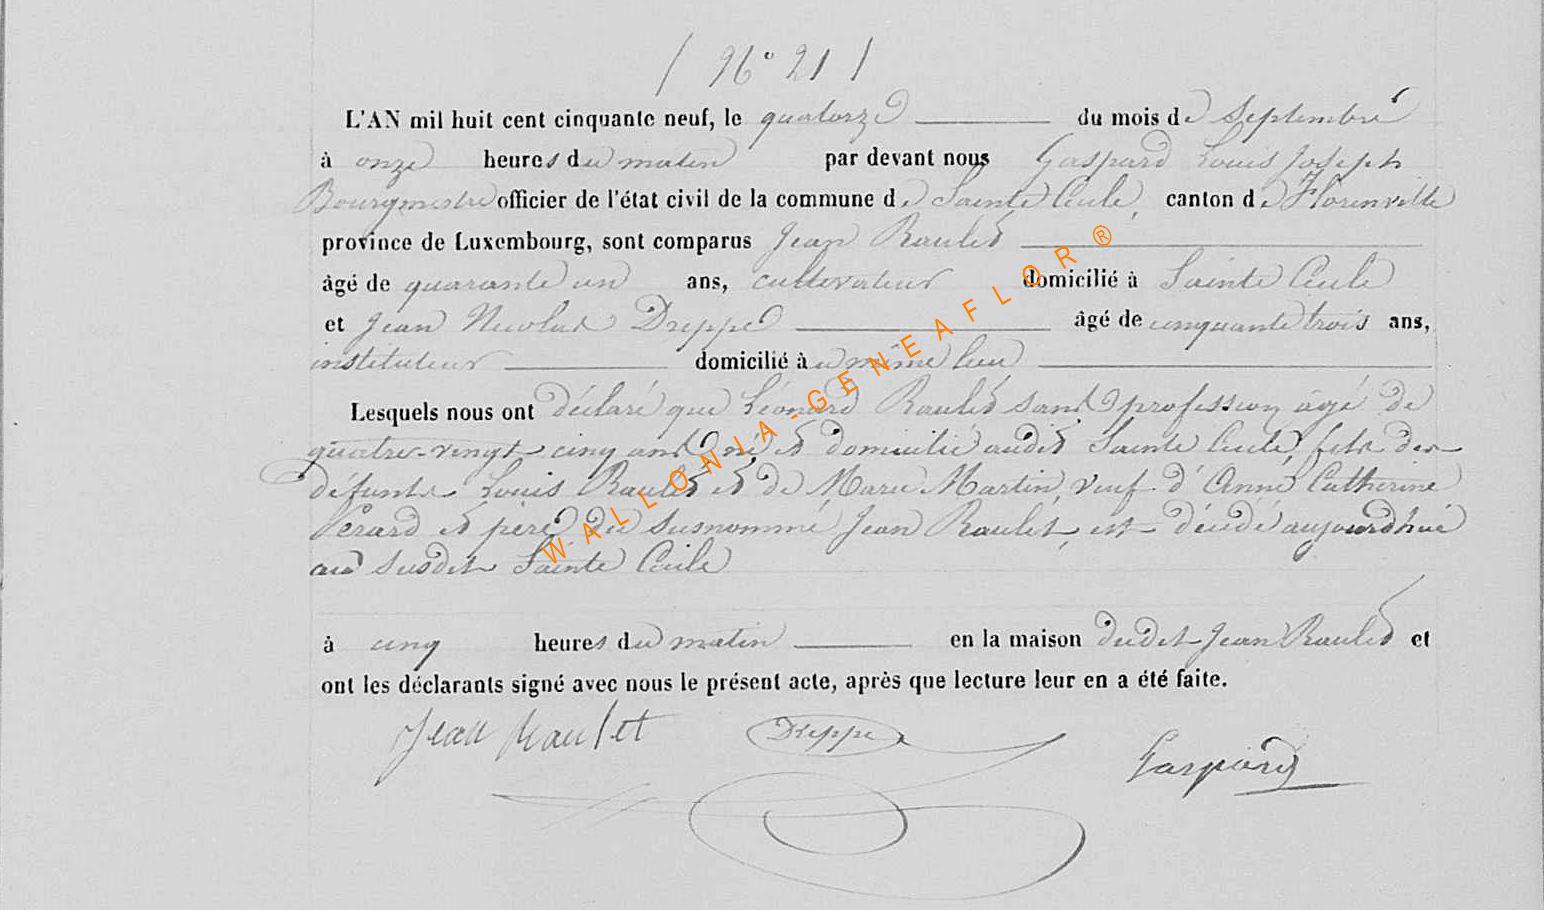 / N° 21 /
L'AN mil huit cent cinquante neuf, le quatorze du mois de Septembre
à onze heures du matin par devant nous Gaspard Louis Joseph
Bourgmestre officier de l'état civil de la commune de Sainte Cécile, canton de Florenville
province de Luxembourg, sont comparus Jean Raulet
âgé de quarante un ans, cultivateur domicilié à Sainte Cécile
et Jean Nicolas Dreppe âgé de cinquante trois ans,
instituteur domicilié au même lieu
Lesquels nous ont déclaré que Léonard Raulet sans profession âgé de
quatre-vingt cinq ans né et domicilié audit Sainte Cécile, fils des
défunts Louis Raulet et de Marie Martin, veuf d'Anne Catherine
Perard et père du susnommé Jean Raulet, est décédé aujourd'hui
au susdit Sainte Cécile
à cinq heures du matin en la maison dudit Jean Raulet et
ont les déclarants signé avec nous le présent acte, après que lecture leur en a été faite.
Jean Raulet Dreppe Gaspard
WALLONIA-GENEAFLOR®